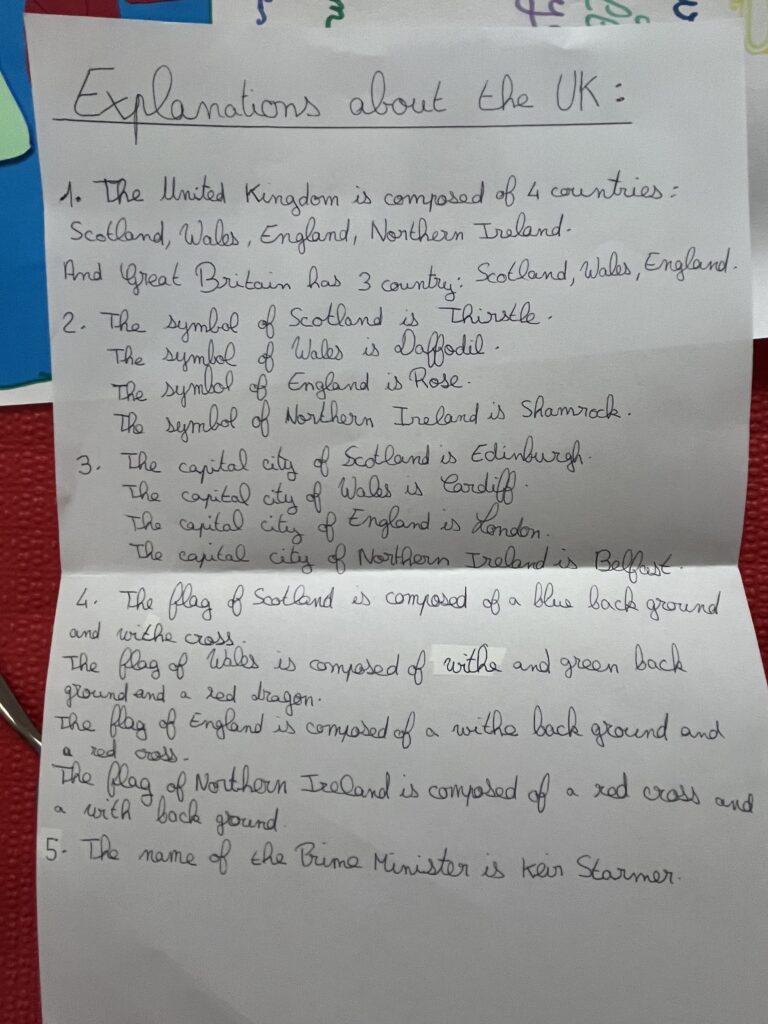 Explanations about the UK :
1. The United Kingdom is composed of 4 countries :
Scotland, Wales, England, Northern Ireland.
And Great Britain has 3 country: Scotland, Wales, England.
2. The symbol of Scotland is Thirstle.
The symbol of Wales is Daffodil.
The symbol of England is Rose.
The symbol of Northern Ireland is Shamrock.
3. The capital city of Scotland is Edinburgh.
The capital city of Wales is Cardiff.
The capital city of England is London.
The capital city of Northern Ireland is Belfast.
4. The flag of Scotland is composed of a blue back ground
and withe cross.
The flag of Wales is composed of withe and green back
ground and a red dragon.
The flag of England is composed of a withe back ground and
a red cross.
The flag of Northern Ireland is composed of a red cross and
a with back ground.
5. The name of the Prime Minister is Keir Starmer.